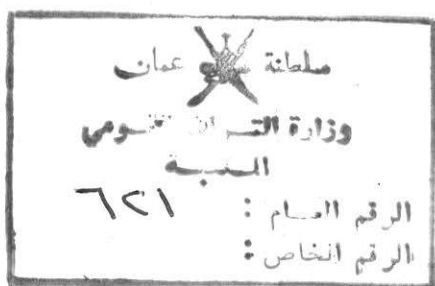 سلطنة عمان
وزارة التراث القومي
المكتبة
الرقم العام : ٦٢١
الرقم الخاص :